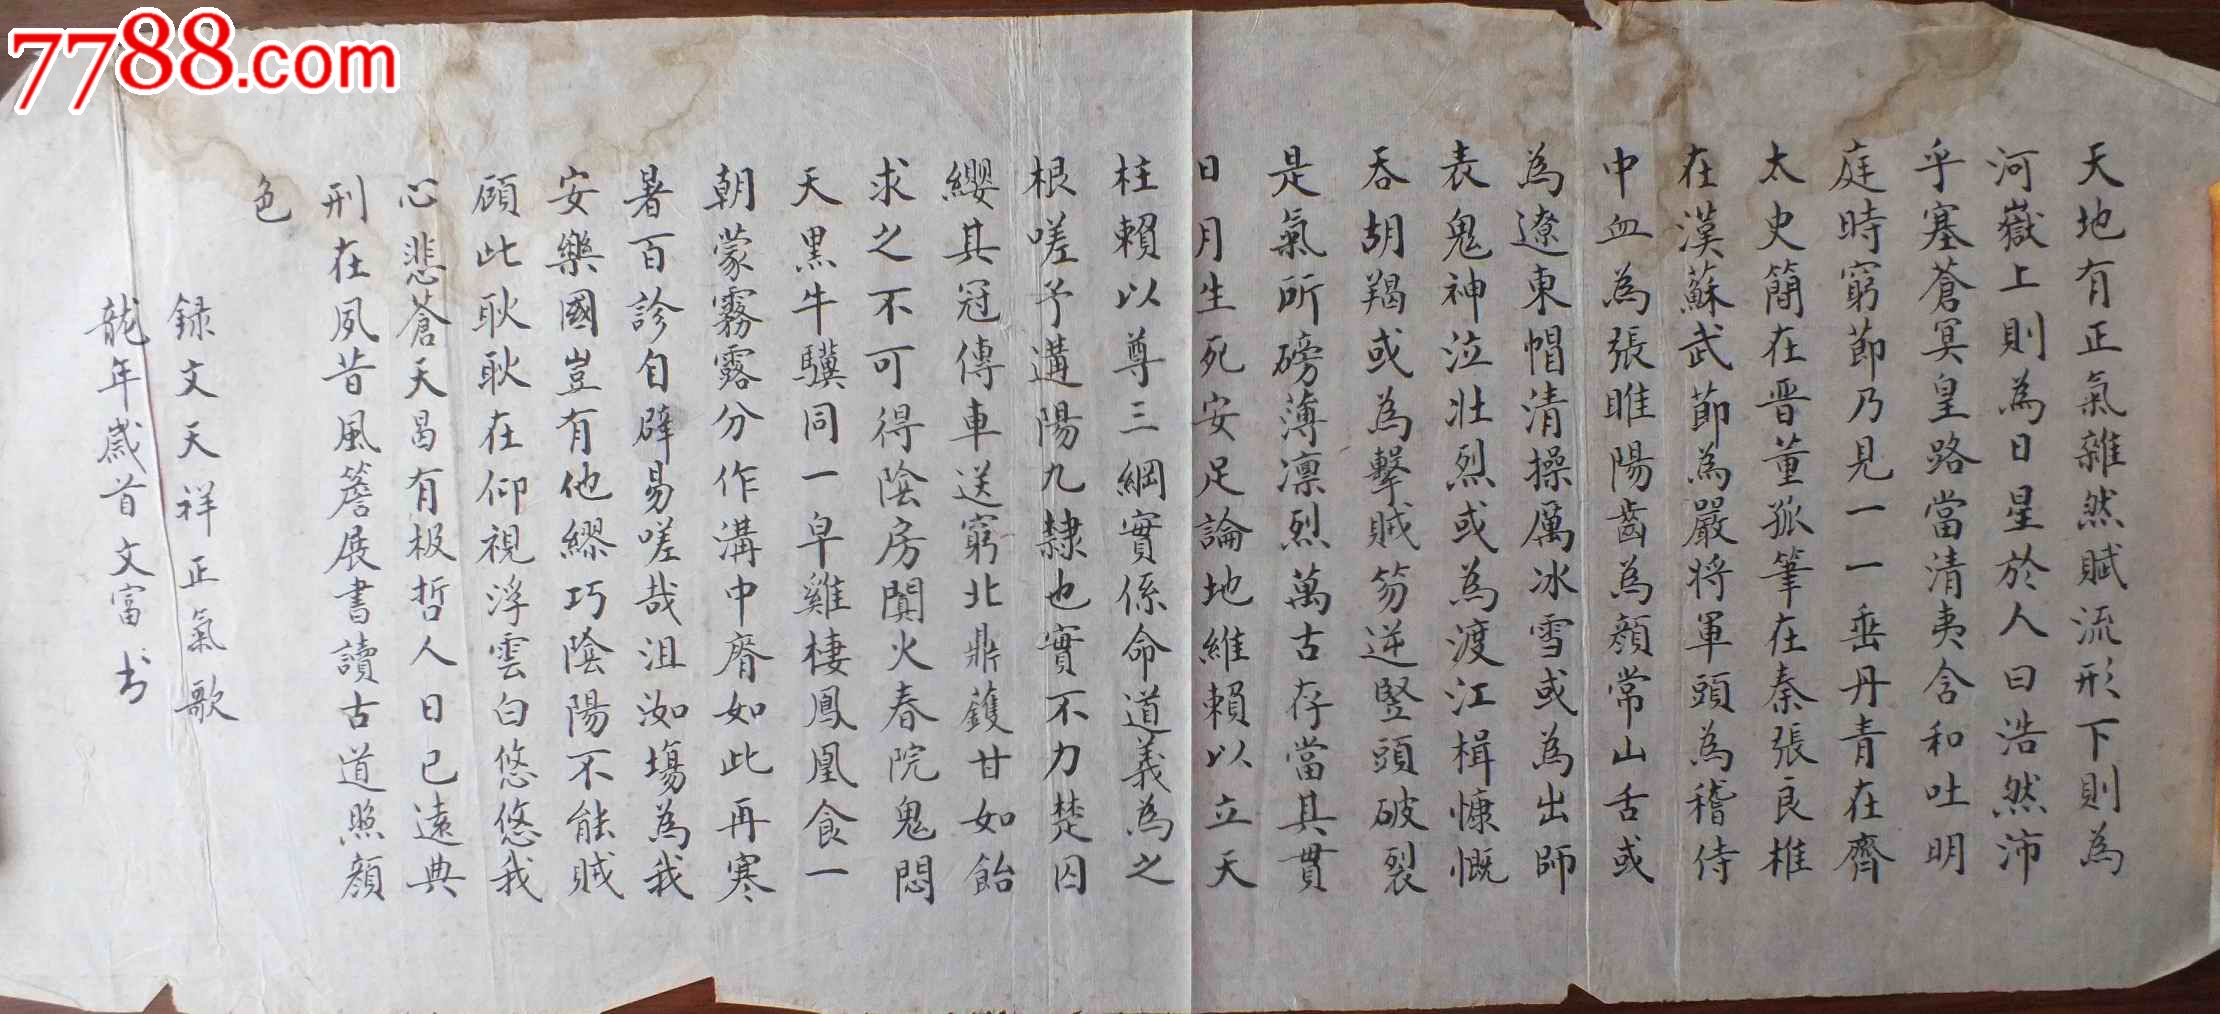 7788.com
天地有正氣雜然賦流形下則為
河嶽上則為日星於人曰浩然沛
乎塞蒼冥皇路當清夷含和吐明
庭時窮節乃見一一垂丹青在齊
太史簡在晋董狐筆在秦張良椎
在漢蘇武節為嚴將軍頭為稽侍
中血為張睢陽齒為顏常山舌或
為遼東帽清操厲冰雪或為出師
表鬼神泣壯烈或為渡江楫慷慨
吞胡羯或為擊賊笏逆豎頭破裂
是氣所磅薄凛烈萬古存當其貫
日月生死安足論地維賴以立天
柱賴以尊三綱實係命道義為之
根嗟予遘陽九隸也實不力楚囚
纓其冠傳車送窮北鼎鑊甘如飴
求之不可得陰房闃火春院鬼悶
天黑牛驥同一皁雞棲鳳凰食一
朝蒙霧露分作溝中瘠如此再寒
暑百診自辟易嗟哉沮洳場為我
安樂國豈有他繆巧陰陽不能賊
顧此耿耿在仰視浮雲白悠悠我
心悲蒼天曷有极哲人日已遠典
刑在夙昔風簷展書讀古道照顏
色
録文天祥正氣歌
龍年歲首文富书